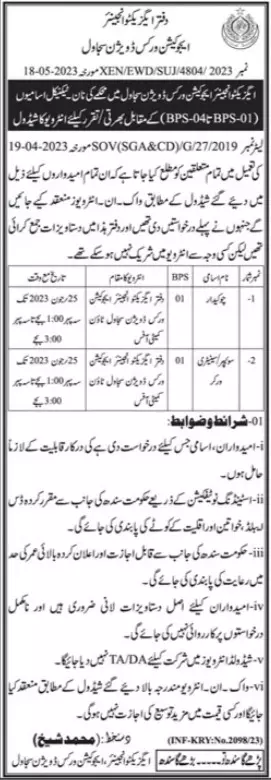 دفتر ایگزیکٹو انجینئر
ایجوکیشن ورکس ڈویژن سجاول
نمبر XEN/EWD/SUJ/4804/ 2023 مورخہ 18-05-2023
ایگزیکٹو انجینئر ایجوکیشن ورکس ڈویژن سجاول میں محکمے کی نان ٹیکنیکل اسامیوں
(BPS-01 تا BPS-04) کے مقابل بھرتی/ تقرر کیلئے انٹرویو کا شیڈول
لیٹر نمبر SOV(SGA&CD)/G/27/2019 مورخہ 19-04-2023
کی تعمیل میں تمام متعلقین کو مطلع کیا جاتا ہے کہ ان تمام امیدواروں کیلئے ذیل
میں دیئے گئے شیڈول کے مطابق واک۔ان۔ انٹرویوز منعقد کیے جائیں
گے جنہوں نے پہلے درخواستیں دی تھیں اور دفتر ہذا میں دستاویزات جمع کرائی
تھیں لیکن کسی وجہ سے انٹرویو میں شریک نہیں ہو سکے تھے۔
نمبر شمار نام اسامی BPS انٹرویو کا مقام تاریخ مع وقت
1- چوکیدار 01 دفتر ایگزیکٹو انجینئر ایجوکیشن 25/جون 2023 تک
ورکس ڈویژن سجاول ٹاؤن سہ پہر 1:00 بجے تا سہ پہر
کمیٹی آفس 3:00 بجے
2- سویپر/سینیٹری 01 دفتر ایگزیکٹو انجینئر ایجوکیشن 25/جون 2023 تک
ورکر ورکس ڈویژن سجاول ٹاؤن سہ پہر 1:00 بجے تا سہ پہر
کمیٹی آفس 3:00 بجے
01- شرائط و ضوابط:
i- امیدواران، اسامی جس کیلئے درخواست دی ہے کی درکار قابلیت کے لازماً
حامل ہوں۔
ii- اسٹینڈنگ نوٹیفکیشن کے ذریعے حکومت سندھ کی جانب سے مقرر کردہ ڈس
ایبلڈ، خواتین اور اقلیت کے کوٹے کی پابندی کی جائے گی۔
iii- حکومت سندھ کی جانب سے قابل اجازت اور اعلان کردہ بالائی عمر کی حد
میں رعایت کی پابندی کی جائے گی۔
iv- امیدواران کیلئے اصل دستاویزات لانی ضروری ہیں اور نامکمل
درخواستوں پر کارروائی نہیں کی جائے گی۔
v- شیڈولڈ انٹرویوز میں شرکت کیلئے TA/DA نہیں دیا جائیگا۔
vi- واک۔ان۔ انٹرویو مندرجہ بالا دیئے گئے شیڈول کے مطابق منعقد کیا
جائیگا اور کسی قیمت میں مزید توسیع کی اجازت نہیں دی جائیگی۔
(INF-KRY:No.2098/23) دستخط: محمد شیخ
پڑھے گا سندھ تو۔۔ بڑھے گا سندھ
ایگزیکٹو انجینئر
ایجوکیشن ورکس ڈویژن سجاول